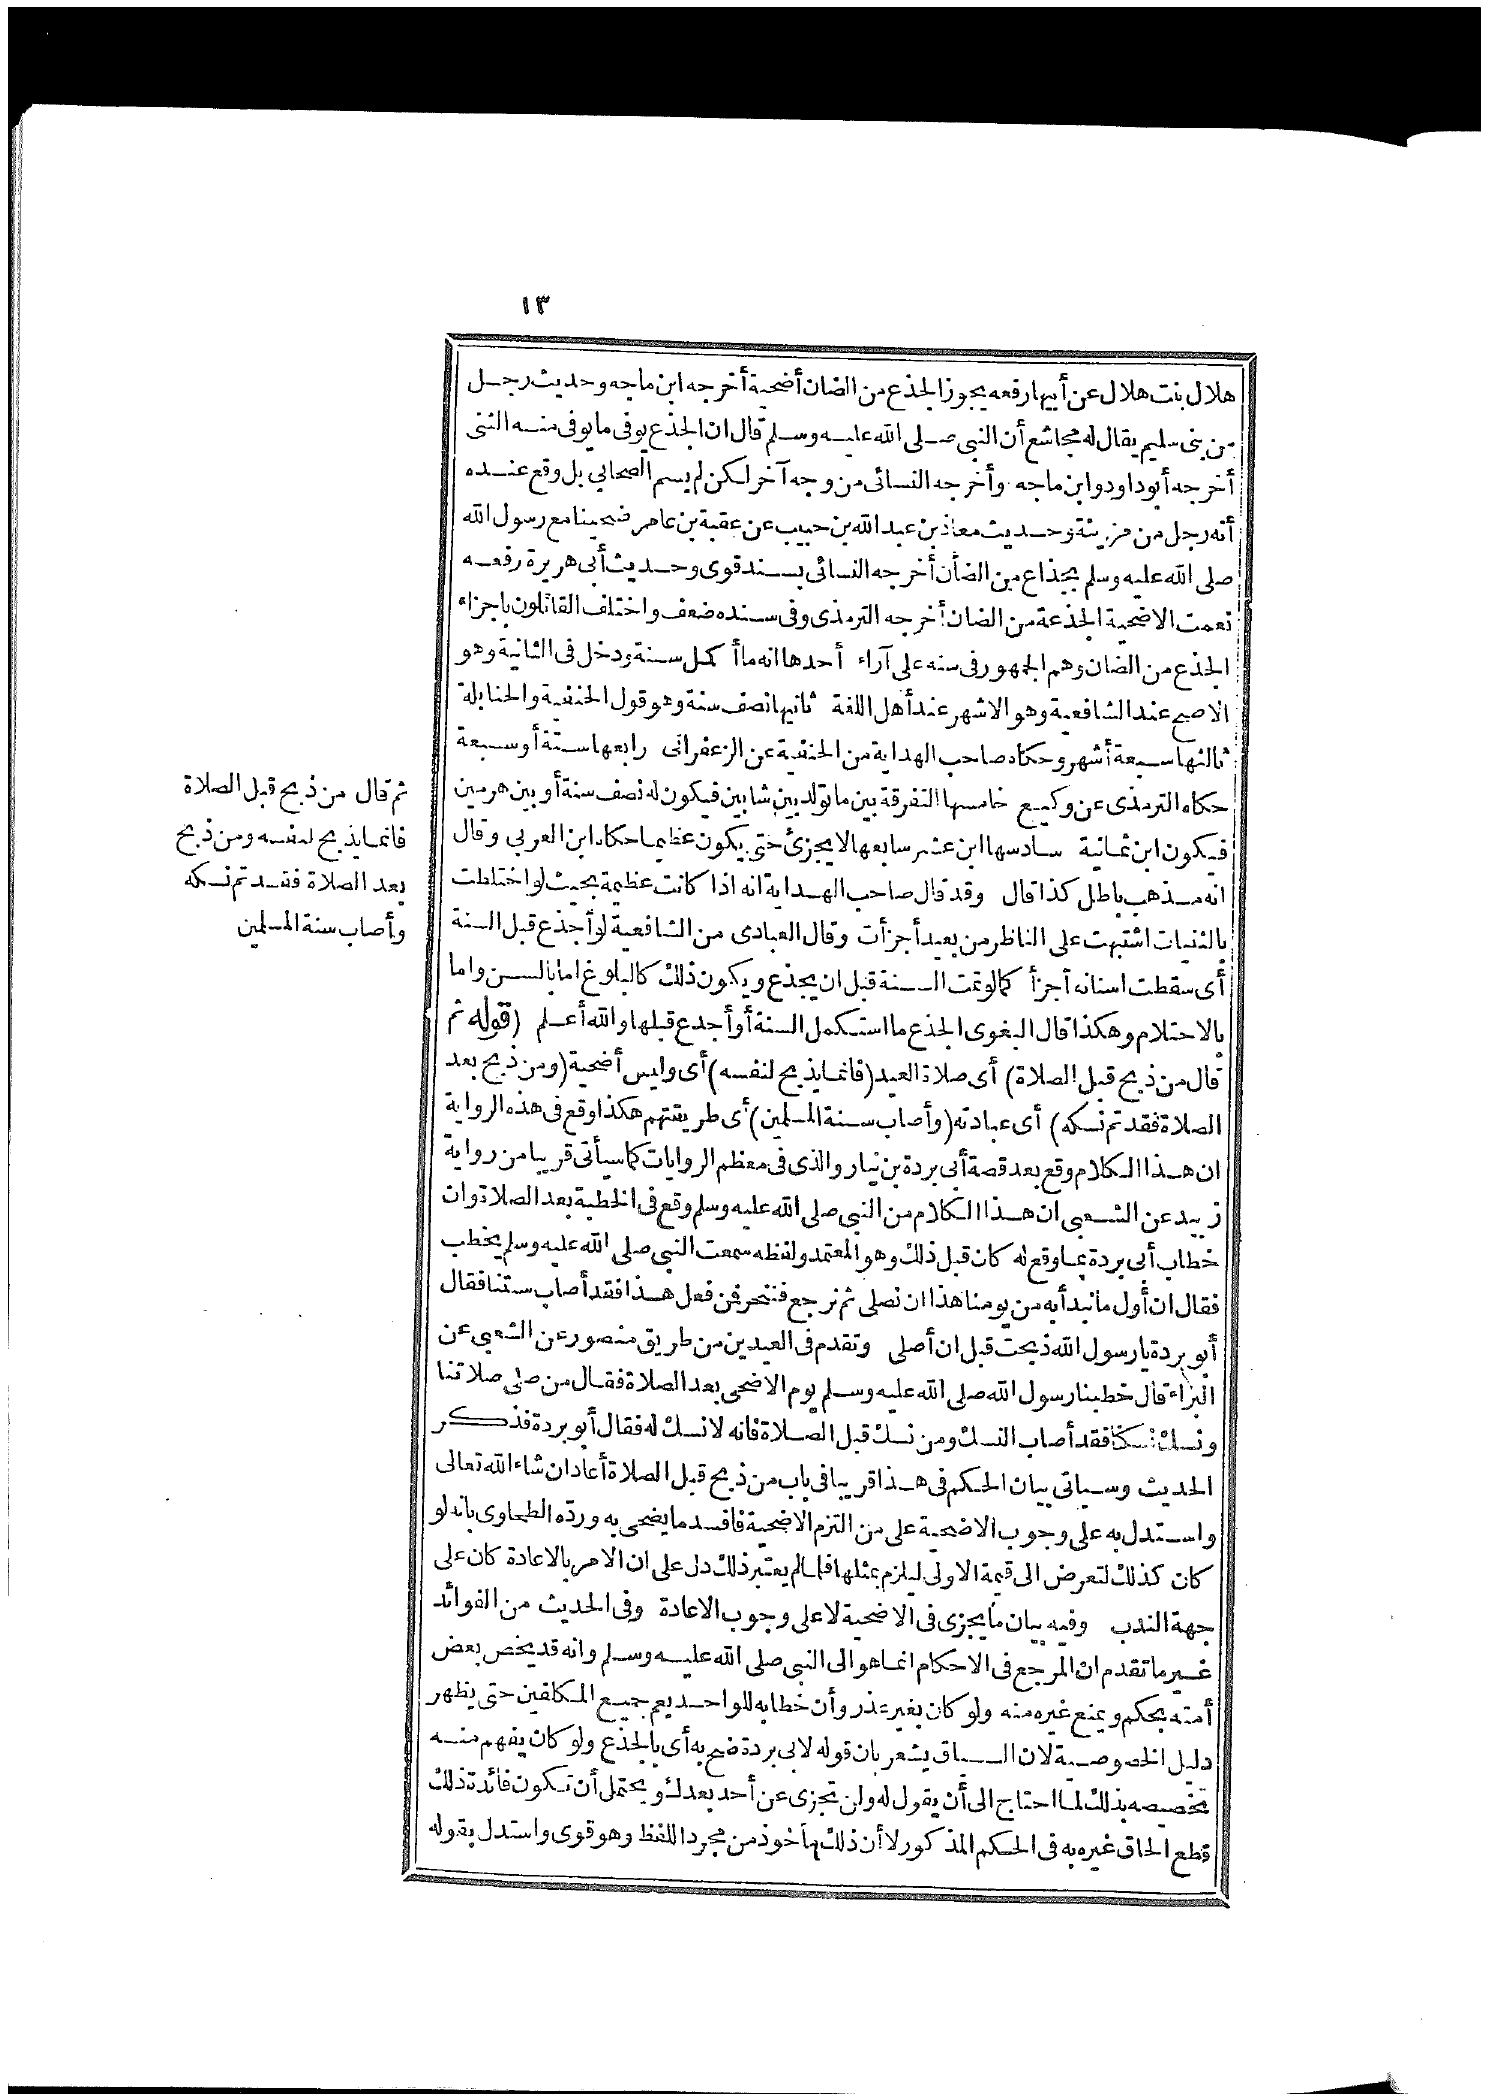 ١٣
هلال بنت هلال عن أبيها رفعه يجوز الجذع من الضان أضحية أخرجه ابن ماجه وحديث رجل
من بنى سليم يقال له مجاشع أن النبى صلى الله عليه وسلم قال ان الجذع يوفى ما يوفى منه الثنى
أخرجه أبو داود وابن ماجه وأخرجه النسائى من وجه آخر لكن لم يسم الصحابي بل وقع عنده
أنه رجل من مزينة وحديث معاذ بن عبد الله بن حبيب عن عقبة بن عامر ضحينا مع رسول الله
صلى الله عليه وسلم بجذاع من الضأن أخرجه النسائى بسند قوى وحديث أبى هريرة رفعه
نعمت الاضحية الجذعة من الضان أخرجه الترمذى وفى سنده ضعف واختلف القائلون باجزاء
الجذع من الضان وهم الجمهور فى سنه على آراء أحدها انه ما أكمل سنة ودخل فى الثانية وهو
الاصح عند الشافعية وهو الاشهر عند أهل اللغة ثانيها نصف سنة وهو قول الحنفية والحنابلة
ثالثها سبعة أشهر وحكاه صاحب الهداية من الحنفية عن الزعفرانى رابعها ستة أو سبعة
حكاه الترمذى عن وكيع خامسها التفرقة بين ما تولد بين شابين فيكون له نصف سنة أو بين هرمين
فيكون ابن ثمانية سادسها ابن عشر سابعها لا يجزئ حتى يكون عظيما حكاه ابن العربي وقال
انه مذهب باطل كذا قال وقد قال صاحب الهداية انه اذا كانت عظيمة بحيث لو اختلطت
بالثنيات اشتبهت على الناظر من بعيد أجزأت وقال العبادى من الشافعية لو أجذع قبل السنة
أى سقطت اسنانه أجزأ كما لو تمت السنة قبل ان يجذع ويكون ذلك كالبلوغ اما بالسن واما
بالاحتلام وهكذا قال البغوى الجذع ما استكمل السنة أو أجدع قبلها والله أعلم (قوله ثم
قال من ذبح قبل الصلاة) أى صلاة العيد (فانما يذبح لنفسه) أى وليس أضحية (ومن ذبح بعد
الصلاة فقد تم نسكه) أى عبادته (وأصاب سنة المسلمين) أى طريقتهم هكذا وقع فى هذه الرواية
ان هذا الكلام وقع بعد قصة أبى بردة بن نيار والذى فى معظم الروايات كما سيأتى قريبا من رواية
زبيد عن الشعبى ان هذا الكلام من النبى صلى الله عليه وسلم وقع فى الخطبة بعد الصلاة وان
خطاب أبى بردة بما وقع له كان قبل ذلك وهو المعتمد ولفظه سمعت النبى صلى الله عليه وسلم يخطب
فقال ان أول ما نبدأ به من يومنا هذا ان نصلى ثم نرجع فننحر فمن فعل هذا فقد أصاب سنتنا فقال
أبو بردة يا رسول الله ذبحت قبل ان أصلى وتقدم فى العيدين من طريق منصور عن الشعبى عن
البراء قال خطبنا رسول الله صلى الله عليه وسلم يوم الاضحى بعد الصلاة فقال من صلى صلاتنا
ونسك نسكنا فقد أصاب النسك ومن نسك قبل الصلاة فانه لا نسك له فقال أبو بردة فذكر
الحديث وسيأتى بيان الحكم فى هذا قريبا فى باب من ذبح قبل الصلاة أعاد ان شاء الله تعالى
واستدل به على وجوب الاضحية على من التزم الاضحية فافسد ما يضحى به ورده الطحاوى بانه لو
كان كذلك لتعرض الى قيمة الاولى ليلزم بمثلها فلما لم يعتبر ذلك دل على ان الامر بالاعادة كان على
جهة الندب وفيه بيان ما يجزى فى الاضحية لا على وجوب الاعادة وفى الحديث من الفوائد
غير ما تقدم ان المرجع فى الاحكام انما هو الى النبى صلى الله عليه وسلم وانه قد يخص بعض
أمته بحكم ويمنع غيره منه ولو كان بغير عذر وأن خطابه للواحد يعم جميع المكلفين حتى يظهر
دليل الخصوصية لان السياق يشعر بان قوله لابى بردة ضح به أى بالجذع ولو كان يفهم منه
تخصيصه بذلك لما احتاج الى أن يقول له ولن تجزى عن أحد بعدك ويحتمل أن تكون فائدة ذلك
قطع الحاق غيره به فى الحكم المذكور لا أن ذلك مأخوذ من مجرد اللفظ وهو قوى واستدل بقوله
ثم قال من ذبح قبل الصلاة
فانما يذبح لنفسه ومن ذبح
بعد الصلاة فقد تم نسكه
وأصاب سنة المسلمين